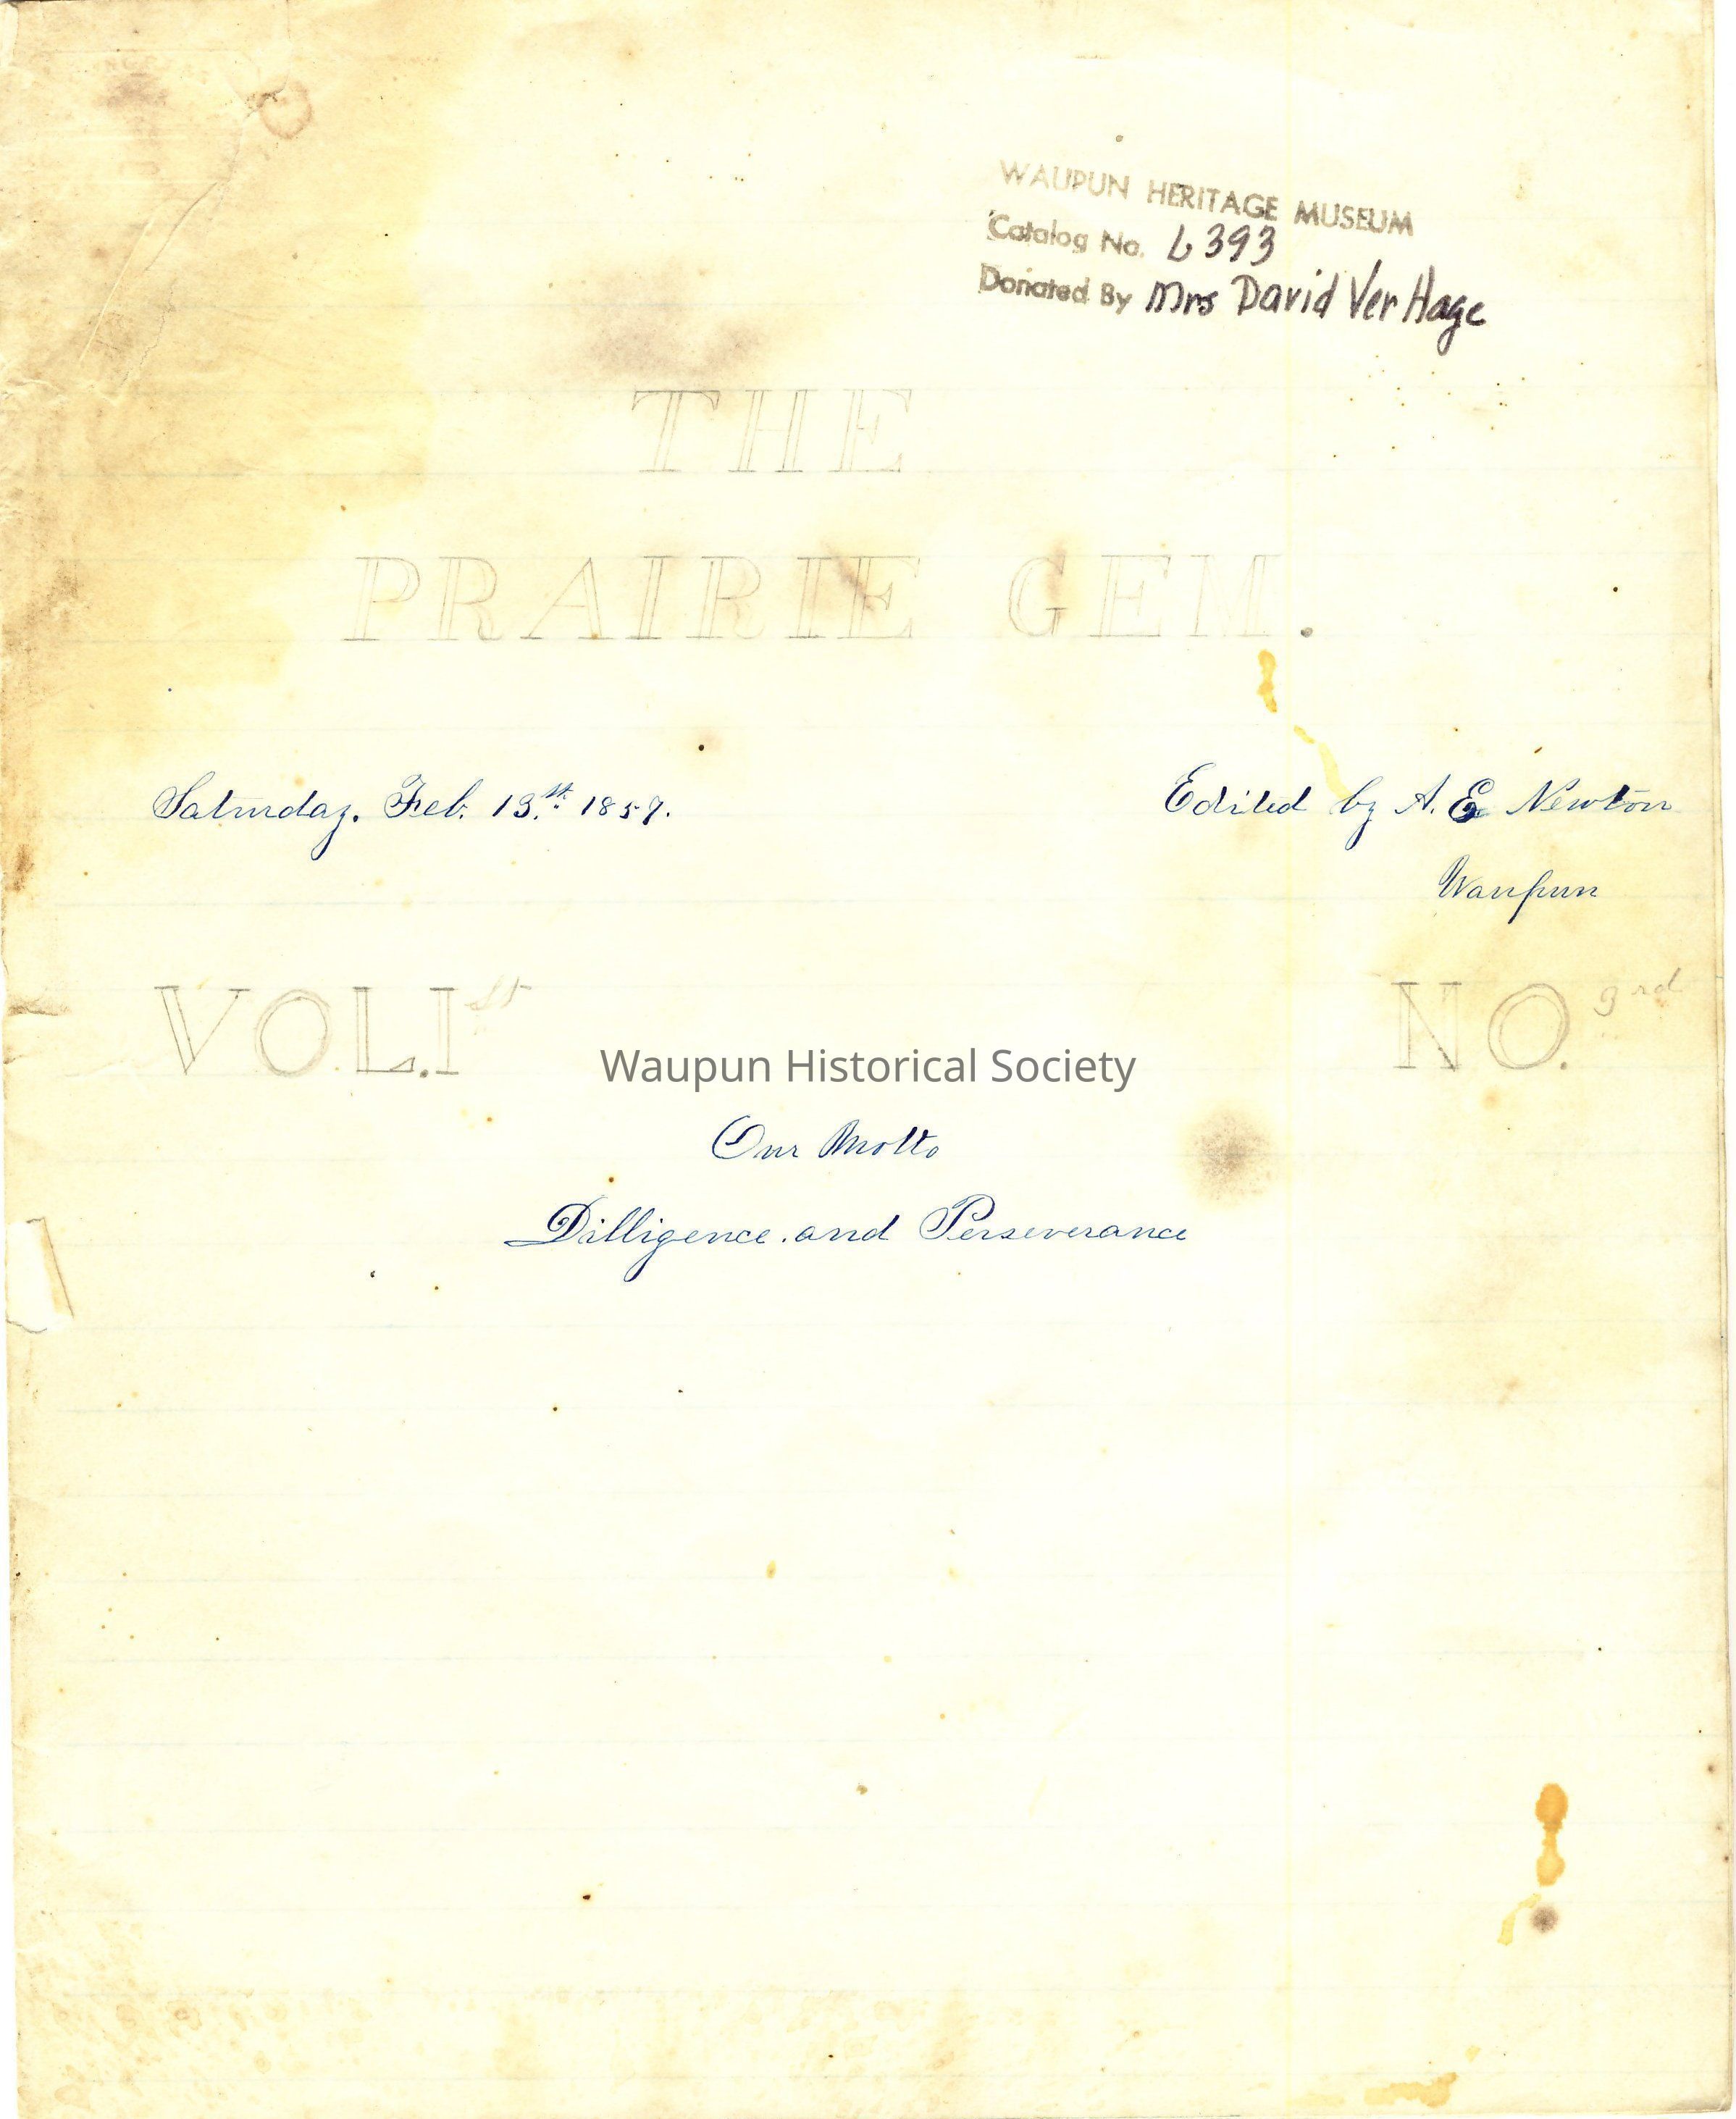 WAUPUN HERITAGE MUSEUM
Catalog No. L393
Donated By Mrs David Ver Hage
THE
PRAIRIE GEM.
Saturday. Feb. 13.st 1859.
Edited by A. E Newton
Waupun
VOL.1st
NO. 3rd
Waupun Historical Society
Our Motto
Dilligence. and Perseverance